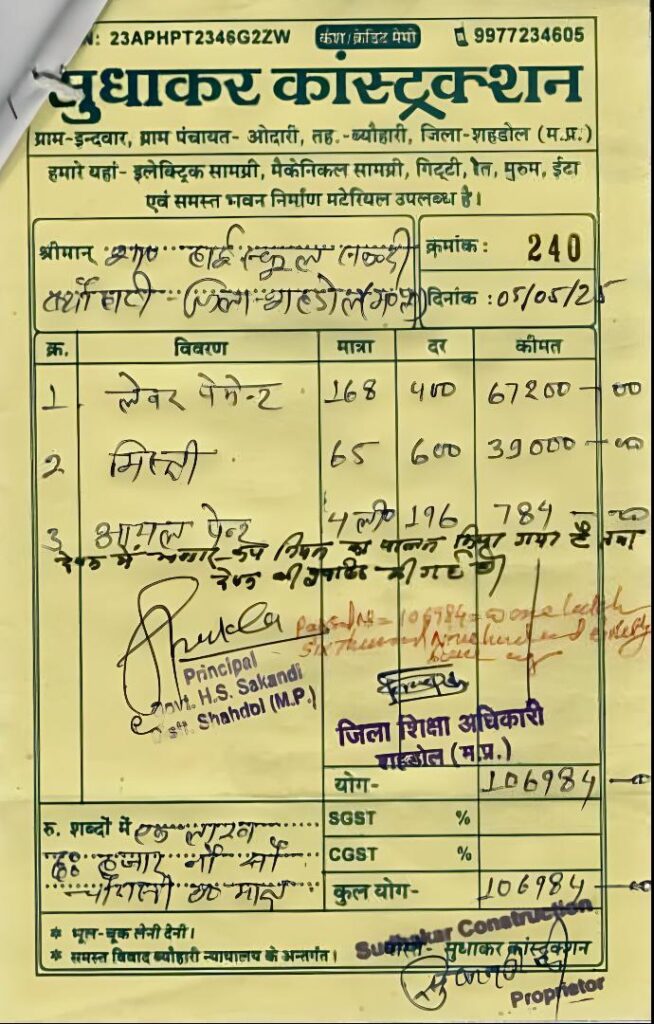 N: 23APHPT2346G2ZW कैश/क्रेडिट मेमो 9977234605
सुधाकर कांस्ट्रक्शन
ग्राम-इन्दवार, ग्राम पंचायत- ओदारी, तह.-ब्यौहारी, जिला-शहडोल (म.प्र.)
हमारे यहां- इलेक्ट्रिक सामग्री, मैकेनिकल सामग्री, गिट्टी, रेत, मुरुम, ईटा
एवं समस्त भवन निर्माण मटेरियल उपलब्ध है।
श्रीमान् शा० हाई स्कूल सकन्दी
क्रमांक: 240
जिला-शहडोल म०प्र०
दिनांक: 05/05/25
क्र. विवरण मात्रा दर कीमत
1 लेवर पेमेन्ट 168 400 67200-00
2 मिस्त्री 65 600 39000-00
3 आयल पेन्ट 4 ली० 196 784-00
देयक में भण्डार क्रय नियम का पालन किया गया है तथा
देयक की
Passed Rs = 106984 = One lakh
Six thousand Nine hundred eighty
four
Principal
Govt. H.S. Sakandi
Distt. Shahdol (M.P.)
जिला शिक्षा अधिकारी
शहडोल (म.प्र.)
योग- 106984-00
रु. शब्दों में एक लाख
छः हजार नौ सौ
चौरासी रु० मात्र
SGST %
CGST %
कुल योग- 106984-00
* भूल-चूक लेनी देनी।
* समस्त विवाद ब्यौहारी न्यायालय के अन्तर्गत।
Sudhakar Construction
वास्ते- सुधाकर कांस्ट्रक्शन
Proprietor